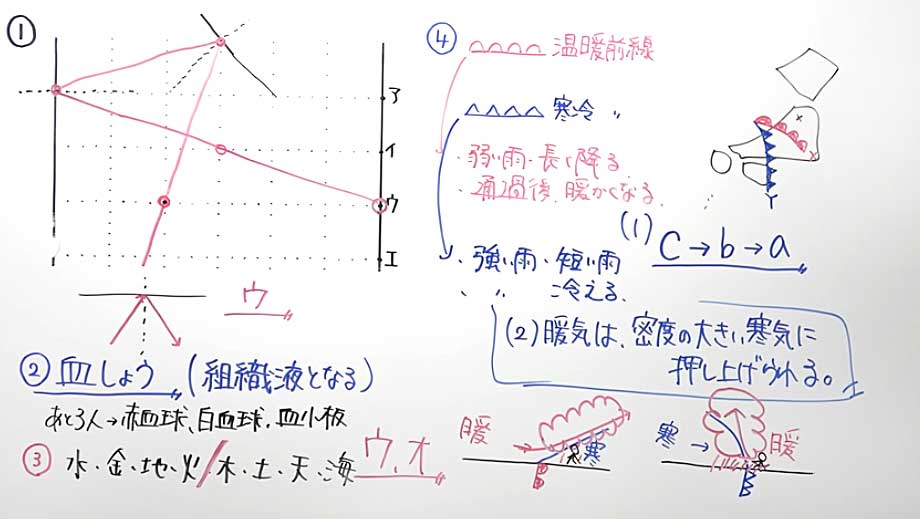 ①
ア
イ
ウ
エ
ウ
② 血しょう (組織液となる)
あと3人→赤血球、白血球、血小板
③ 水・金・地・火/木・土・天・海 ウ、オ
④
温暖前線
寒冷 〃
・弱い雨・長く降る
・通過後、暖かくなる.
・強い雨・短い雨
、 〃 冷える.
x
x
Y
(1) C→b→a
(2) 暖気は、密度の大きい寒気に
押し上げられる。
暖
寒
B
寒
暖
B